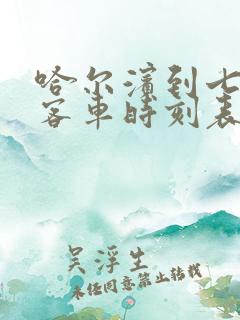 哈尔滨到七
客车时刻表
吴浮生
未经同意禁止转载